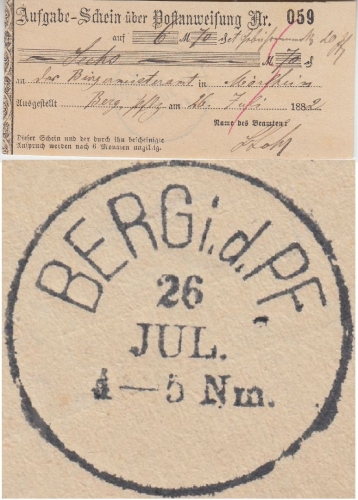 Aufgabe-Schein über Postanweisung Nr. 059
auf 6 M 70 ₰
Sechs M 70 ₰
an das Bürgermeisteramt in
Ausgestellt Berg, am 26. Juli 1882
Name des Beamten:
Dieser Schein und der durch ihn bescheinigte
Anspruch werden nach 6 Monaten ungiltig.
BERG i.d. PF
26
JUL.
4—5 Nm.